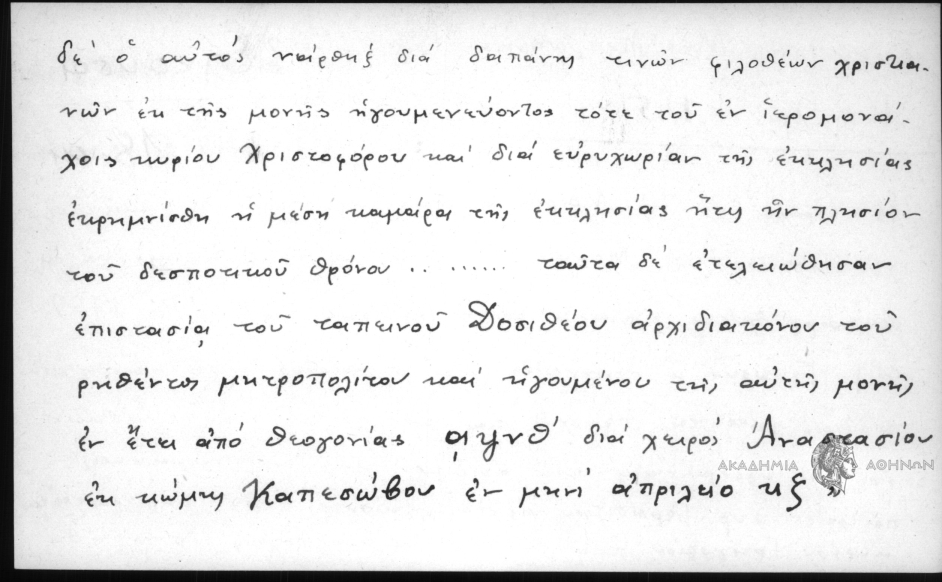 δέ ὁ αὐτός νάρθηξ διά δαπάνης τινῶν φιλοθέων χριστια-
νῶν ἐκ τῆς μονῆς ἡγουμενεύοντος τότε τοῦ ἐν ἱερομονά-
χοις κυρίου Χριστοφόρου καί διά εὐρυχωρίαν τῆς ἐκκλησίας
ἐκρημνίσθη ἡ μέση καμάρα τῆς ἐκκλησίας ἥτις ἦν πλησίον
τοῦ δεσποτικοῦ θρόνου .. ...... ταῦτα δέ ἐτελειώθησαν
ἐπιστασίᾳ τοῦ ταπεινοῦ Δοσιθέου ἀρχιδιακόνου τοῦ
ρηθέντος μητροπολίτου καί ἡγουμένου τῆς αὐτῆς μονῆς
ἐν ἔτει ἀπό θεογονίας ͵αψνθ' διά χειρός Ἀναστασίου
ΑΚΑΔΗΜΙΑ ΑΘΗΝΩΝ
ἐκ κώμης Καπεσώβου ἐν μηνί ἀπριλείο κξ »